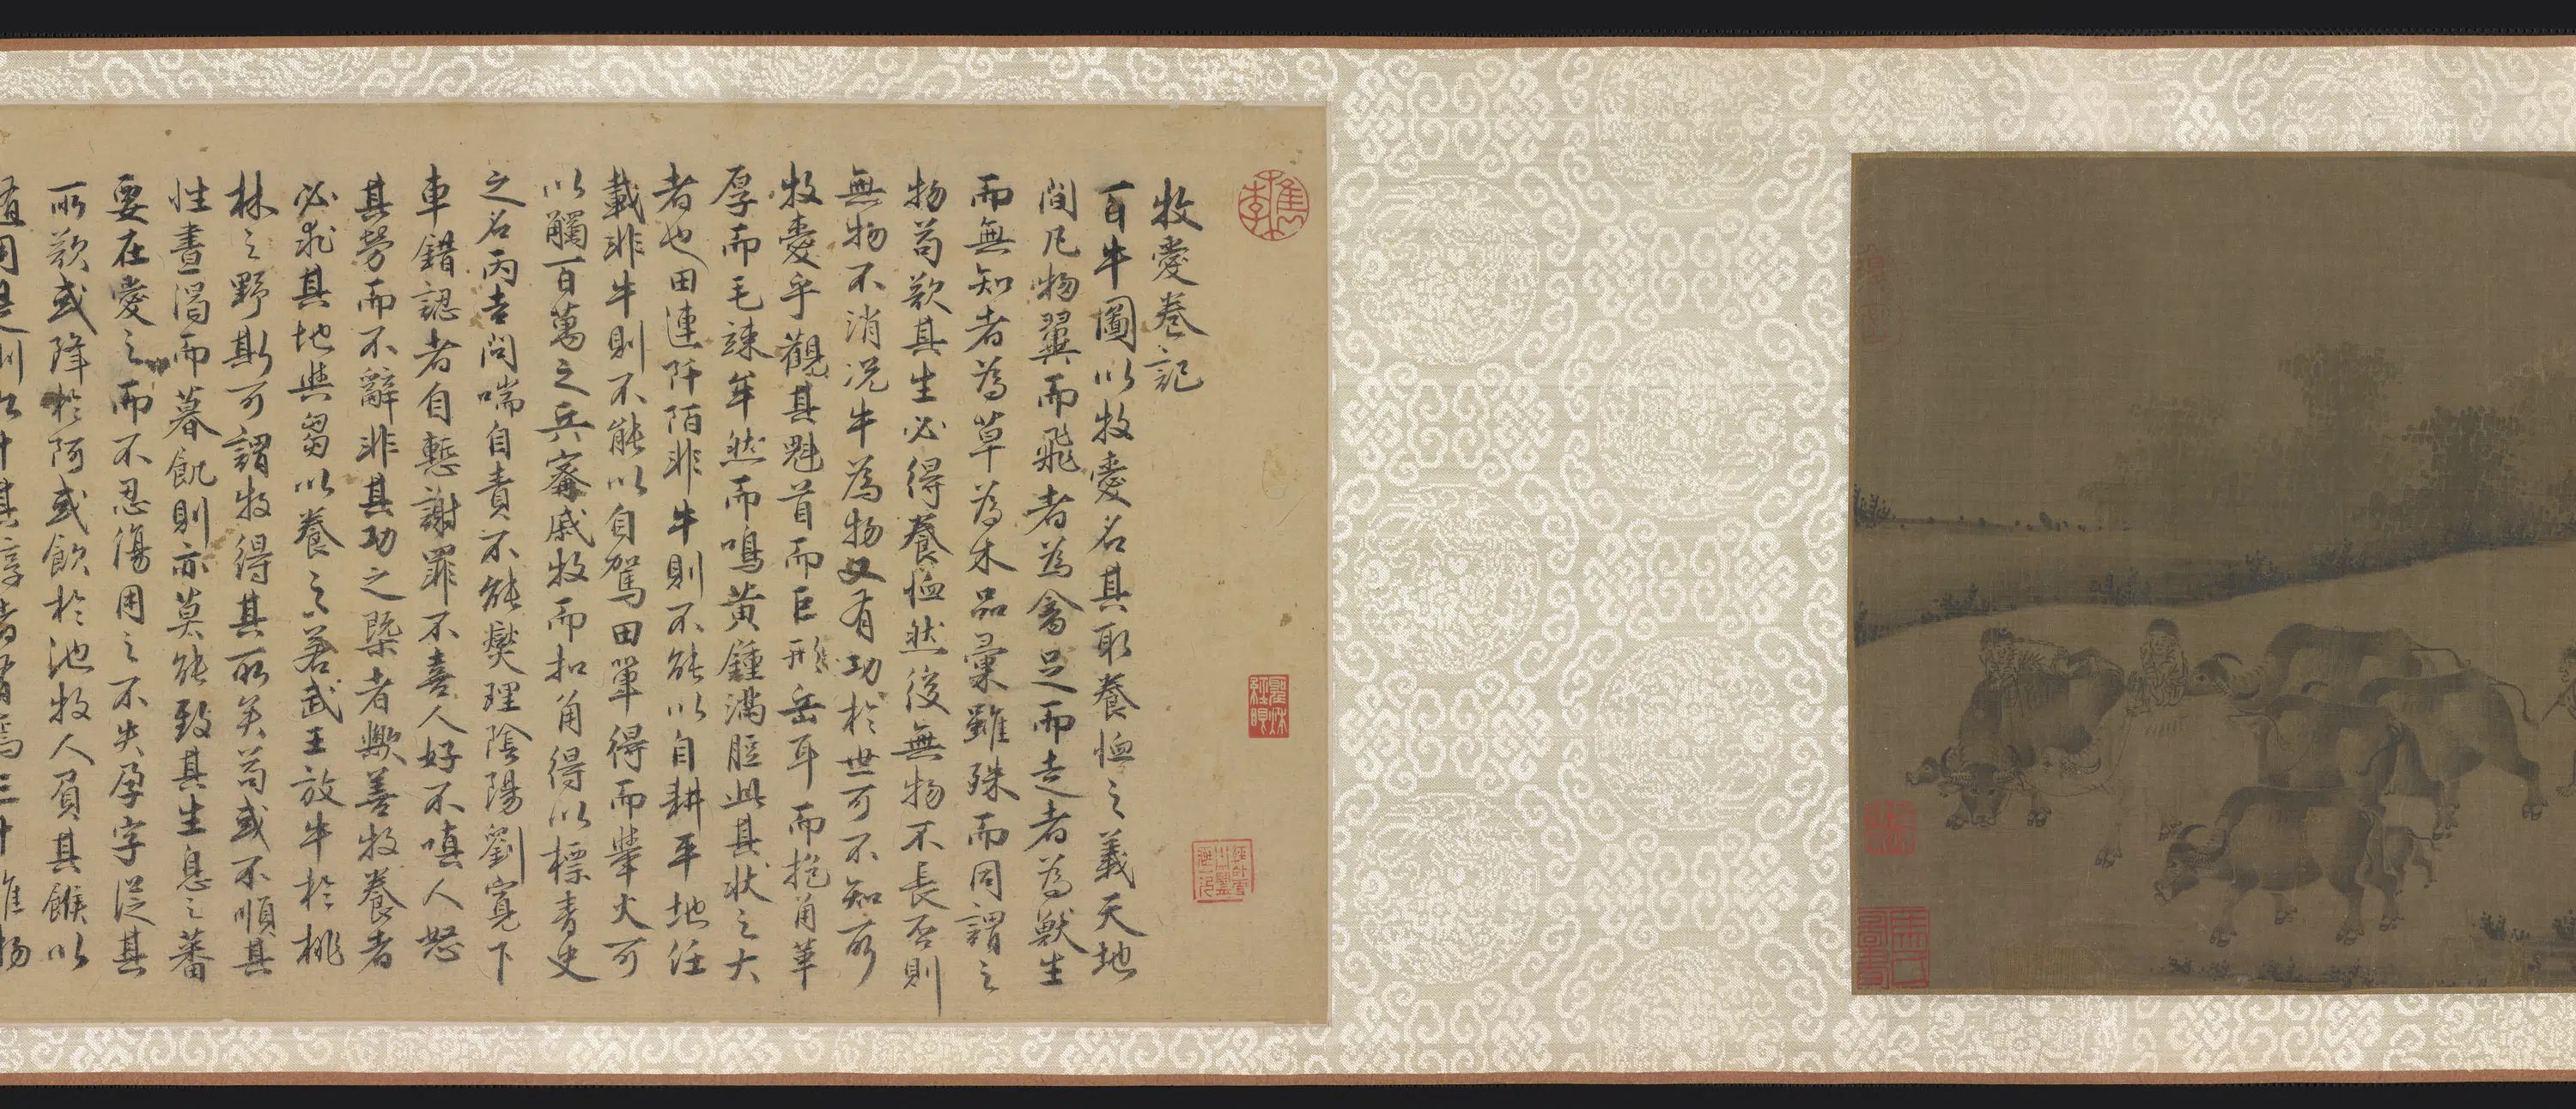 牧愛卷記
百牛圖以牧愛名其取養恤之義天地
間凡物翼而飛者為禽足而走者為獸生
而無知者為草為木品彙雖殊而同謂之
物苟欲其生必得養恤然後無物不長否則
無物不消况牛為物又有功於世可不知所
牧愛乎觀其魁首而巨形岳耳而抱角華
厚而毛疎牟然而鳴黃鍾滿脰此其状之大
者也田連阡陌非牛則不能以自耕平地任
載非牛則不能以自駕田單得而犖火可
以觸百萬之兵甯戚牧而扣角得以標青史
之名丙吉問喘自責不能爕理陰陽劉寬下
車錯認者自慙謝罪不喜人好不嗔人怒
其勞而不辭非其功之槩者歟善牧養者
必求其地與芻以養之若武王放牛於桃
林之野斯可謂牧得其所矣苟或不順其
性晝渴而暮飢則亦莫能致其生息之蕃
要在愛之而不忍傷用之不失孕字從其
所欲或降於阿或飲於池牧人負其餱以